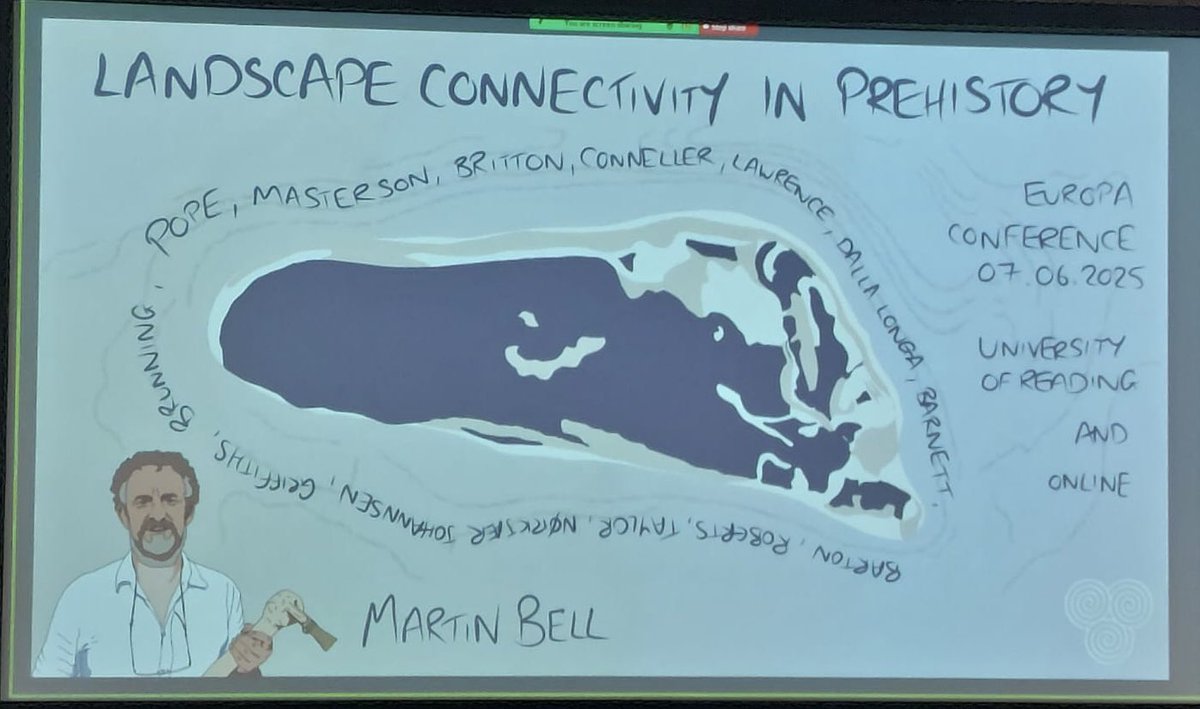 You are screen sharing
Stop share
LANDSCAPE CONNECTIVITY IN PREHISTORY
BRUNNING, POPE, MASTERSON, BRITTON, CONNELLER, LAWRENCE, DALLA LONGA, BARNETT.
BARTON, ROBERTS, TAYLOR, NØRKSJER JOHANNSEN, GRIFFITHS,
EUROPA
CONFERENCE
07.06.2025
UNIVERSITY
OF READING
AND
ONLINE
MARTIN BELL